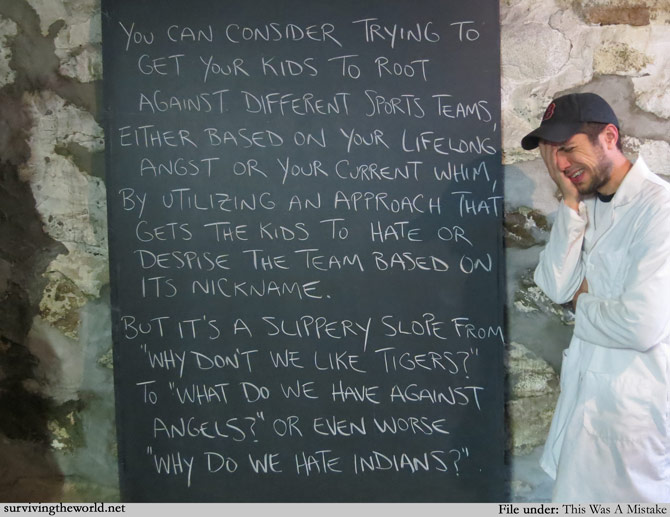 YOU CAN CONSIDER TRYING TO
GET YOUR KIDS TO ROOT
AGAINST DIFFERENT SPORTS TEAMS,
EITHER BASED ON YOUR LIFELONG
ANGST OR YOUR CURRENT WHIM,
BY UTILIZING AN APPROACH THAT
GETS THE KIDS TO HATE OR
DESPISE THE TEAM BASED ON
ITS NICKNAME.
BUT IT'S A SLIPPERY SLOPE FROM
"WHY DON'T WE LIKE TIGERS?"
TO "WHAT DO WE HAVE AGAINST
ANGELS?" OR EVEN WORSE
"WHY DO WE HATE INDIANS?".
survivingtheworld.net
File under: This Was A Mistake